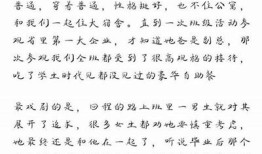 普通，穿着普通，性格挺好，也不住公寓，
和我们一起住大宿舍。直到一次班级活动参
观省里第一大企业，才知道她爸是副总，那
次参观我们全班都受到了很高规格的接待，
吃了学生时代见都没见过的豪华自助餐
最戏剧的是，回程的路上班里一男生就对其
展开了追求，很多女生都劝她要慎重考虑，
她最终还是和他在一起了，听说毕业后那个